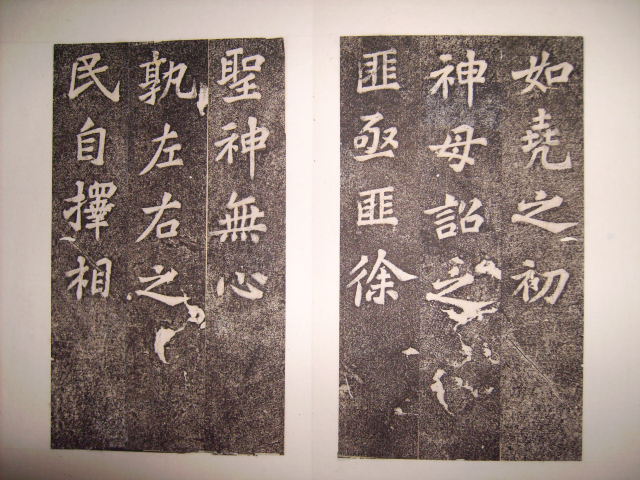 如堯之初
神母詔之
匪亟匪徐
聖神無心
孰左右之
民自擇相